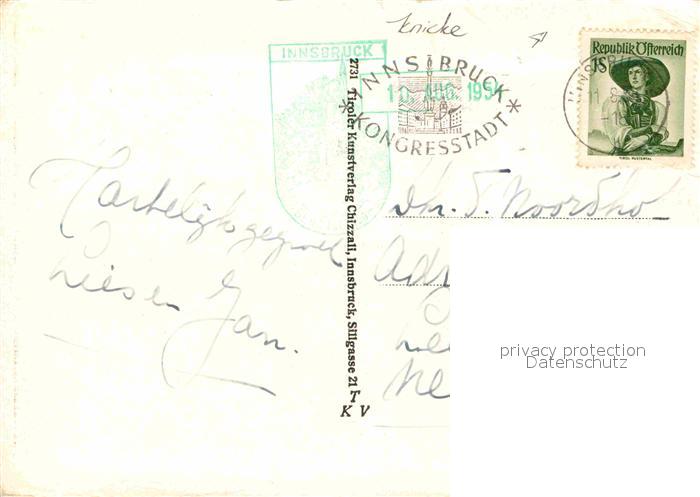 knicke
INNSBRUCK
INNSBRUCK
10 AUG. 195
* KONGRESSTADT *
INNSBRUCK
11
Republik Österreich
1S
TIROL PUSTERTAL
2731 Tiroler Kunstverlag Chizzali, Innsbruck, Sillgasse 21
K V
Hartelijk gegroet
Lies en Jan.
Noordho
privacy protection
Datenschutz